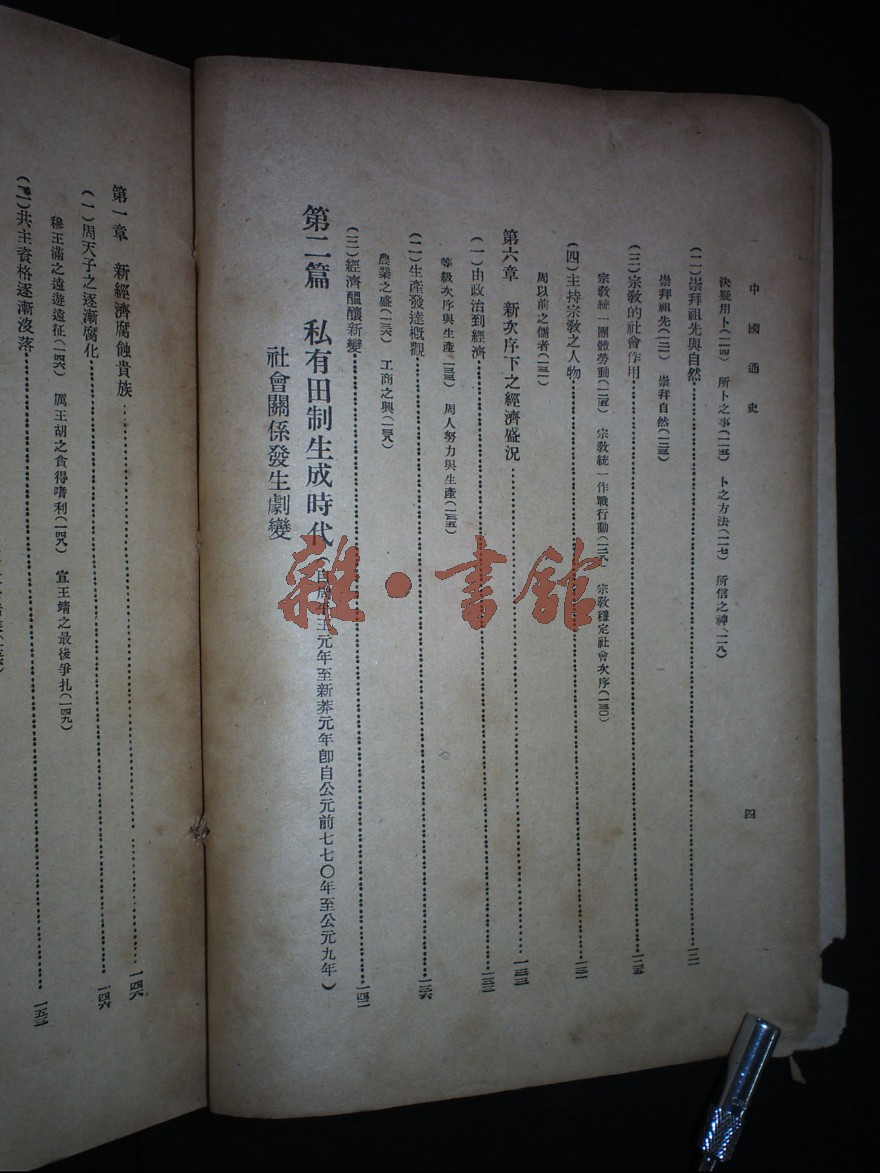 中國通史
四
決疑用卜(一一四) 所卜之事(一一五) 卜之方法(一一七) 所信之神(一一八)
(二)崇拜祖先與自然
崇拜祖先 崇拜自然
(三)宗教的社會作用
宗教統一團體勞動 宗教統一作戰行動 宗教穩定社會次序(一三〇)
(四)主持宗教之人物
周以前之儒者(一三一)
第六章 新次序下之經濟盛況
(一)由政治到經濟
等級次序與生產 周人努力與生產(一三五)
(二)生產發達概觀……一三六
農業之盛(一三六) 工商之興(一三八)
(三)經濟醞釀新變
第二篇 私有田制生成時代(自周平王元年至新莽元年卽自公元前七七〇年至公元九年)
社會關係發生劇變
第一章 新經濟腐蝕貴族……一四六
(一)周天子之逐漸腐化……一四六
穆王滿之遠遊遠征(一四六) 厲王胡之貪得嗜利(一四八) 宣王靖之最後爭扎(一四九)
(二)共主資格逐漸沒落
雜·書館